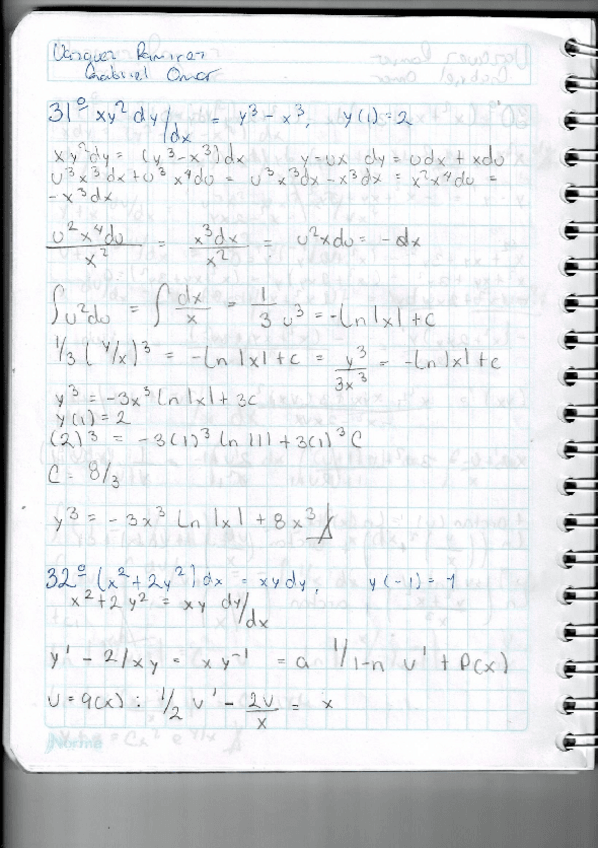 Vazquez Ramirez
Gabriel Omar
31º xy² dy/dx = y³ - x³, y(1) = 2
xy²dy = (y³-x³)dx y=ux dy = udx + xdu
u³x³dx + u³x⁴du = u³x³dx - x³dx = x²x⁴du =
-x³dx
u²x⁴du/x² = x³dx/x² = u²xdu = -dx
∫u²du = ∫dx/x = 1/3 u³ = -Ln|x| + c
1/3 (y/x)³ = -ln|x| + c = y³/3x³ = -Ln|x| + c
y³ = -3x³ ln|x| + 3c
y(1) = 2
(2)³ = -3(1)³ ln|1| + 3(1)³C
C = 8/3
y³ = -3x³ Ln|x| + 8x³
32º (x² + 2y²)dx = xydy, y(-1) = 1
x² + 2y² = xy dy/dx
y' - 2/xy = xy⁻¹ = a 1/1-n u' + P(x)
u = q(x) : 1/2 u' - 2u/x = x
Norma